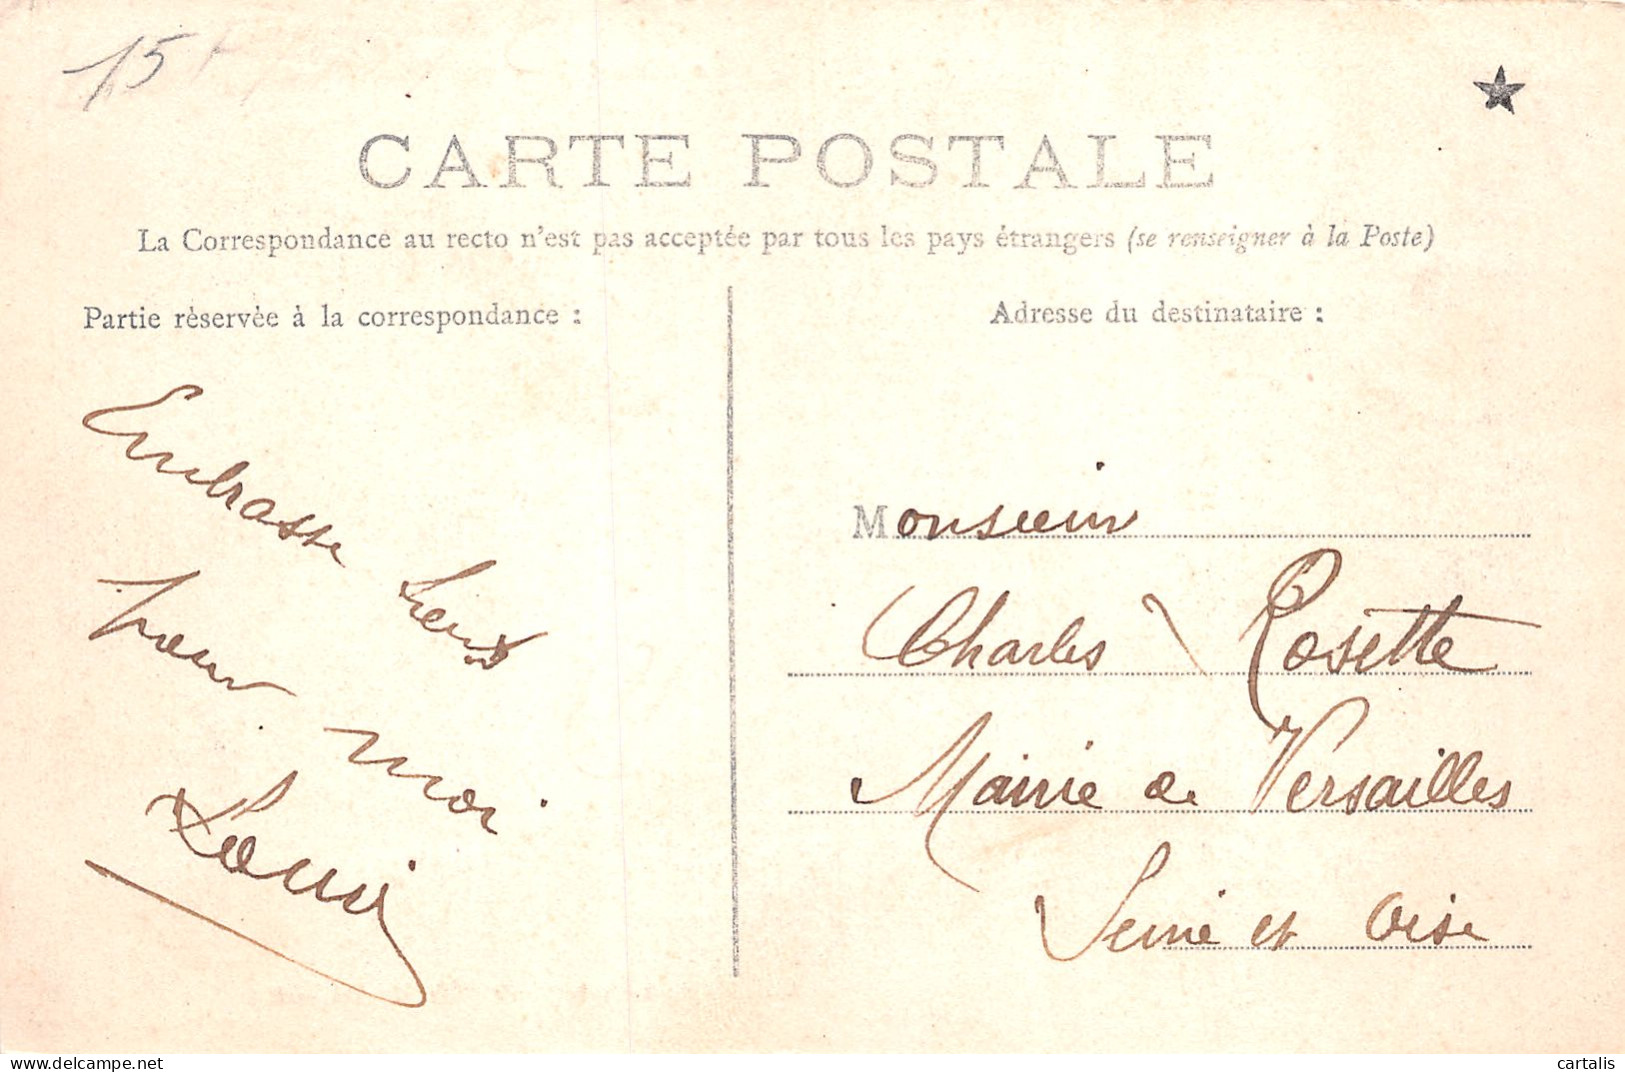 15
CARTE POSTALE
La Correspondance au recto n'est pas acceptée par tous les pays étrangers (se renseigner à la Poste)
Partie réservée à la correspondance :
Embrasse
pour moi
Louis
Adresse du destinataire :
Monsieur
Charles Rosette
Mairie de Versailles
Seine et Oise
cartalis